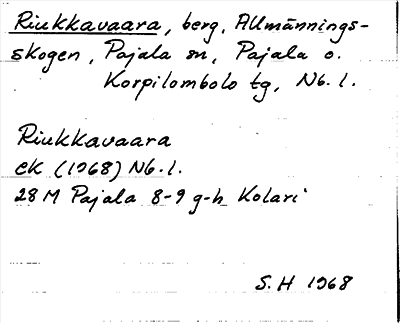 Riukkavaara, berg, Allmännings-
skogen, Pajala sn, Pajala o.
Korpilombolo tg, Nb. l.
Riukkavaara
ek (1968) Nb. l.
28 M Pajala 8-9 g-h Kolari
S. H 1968